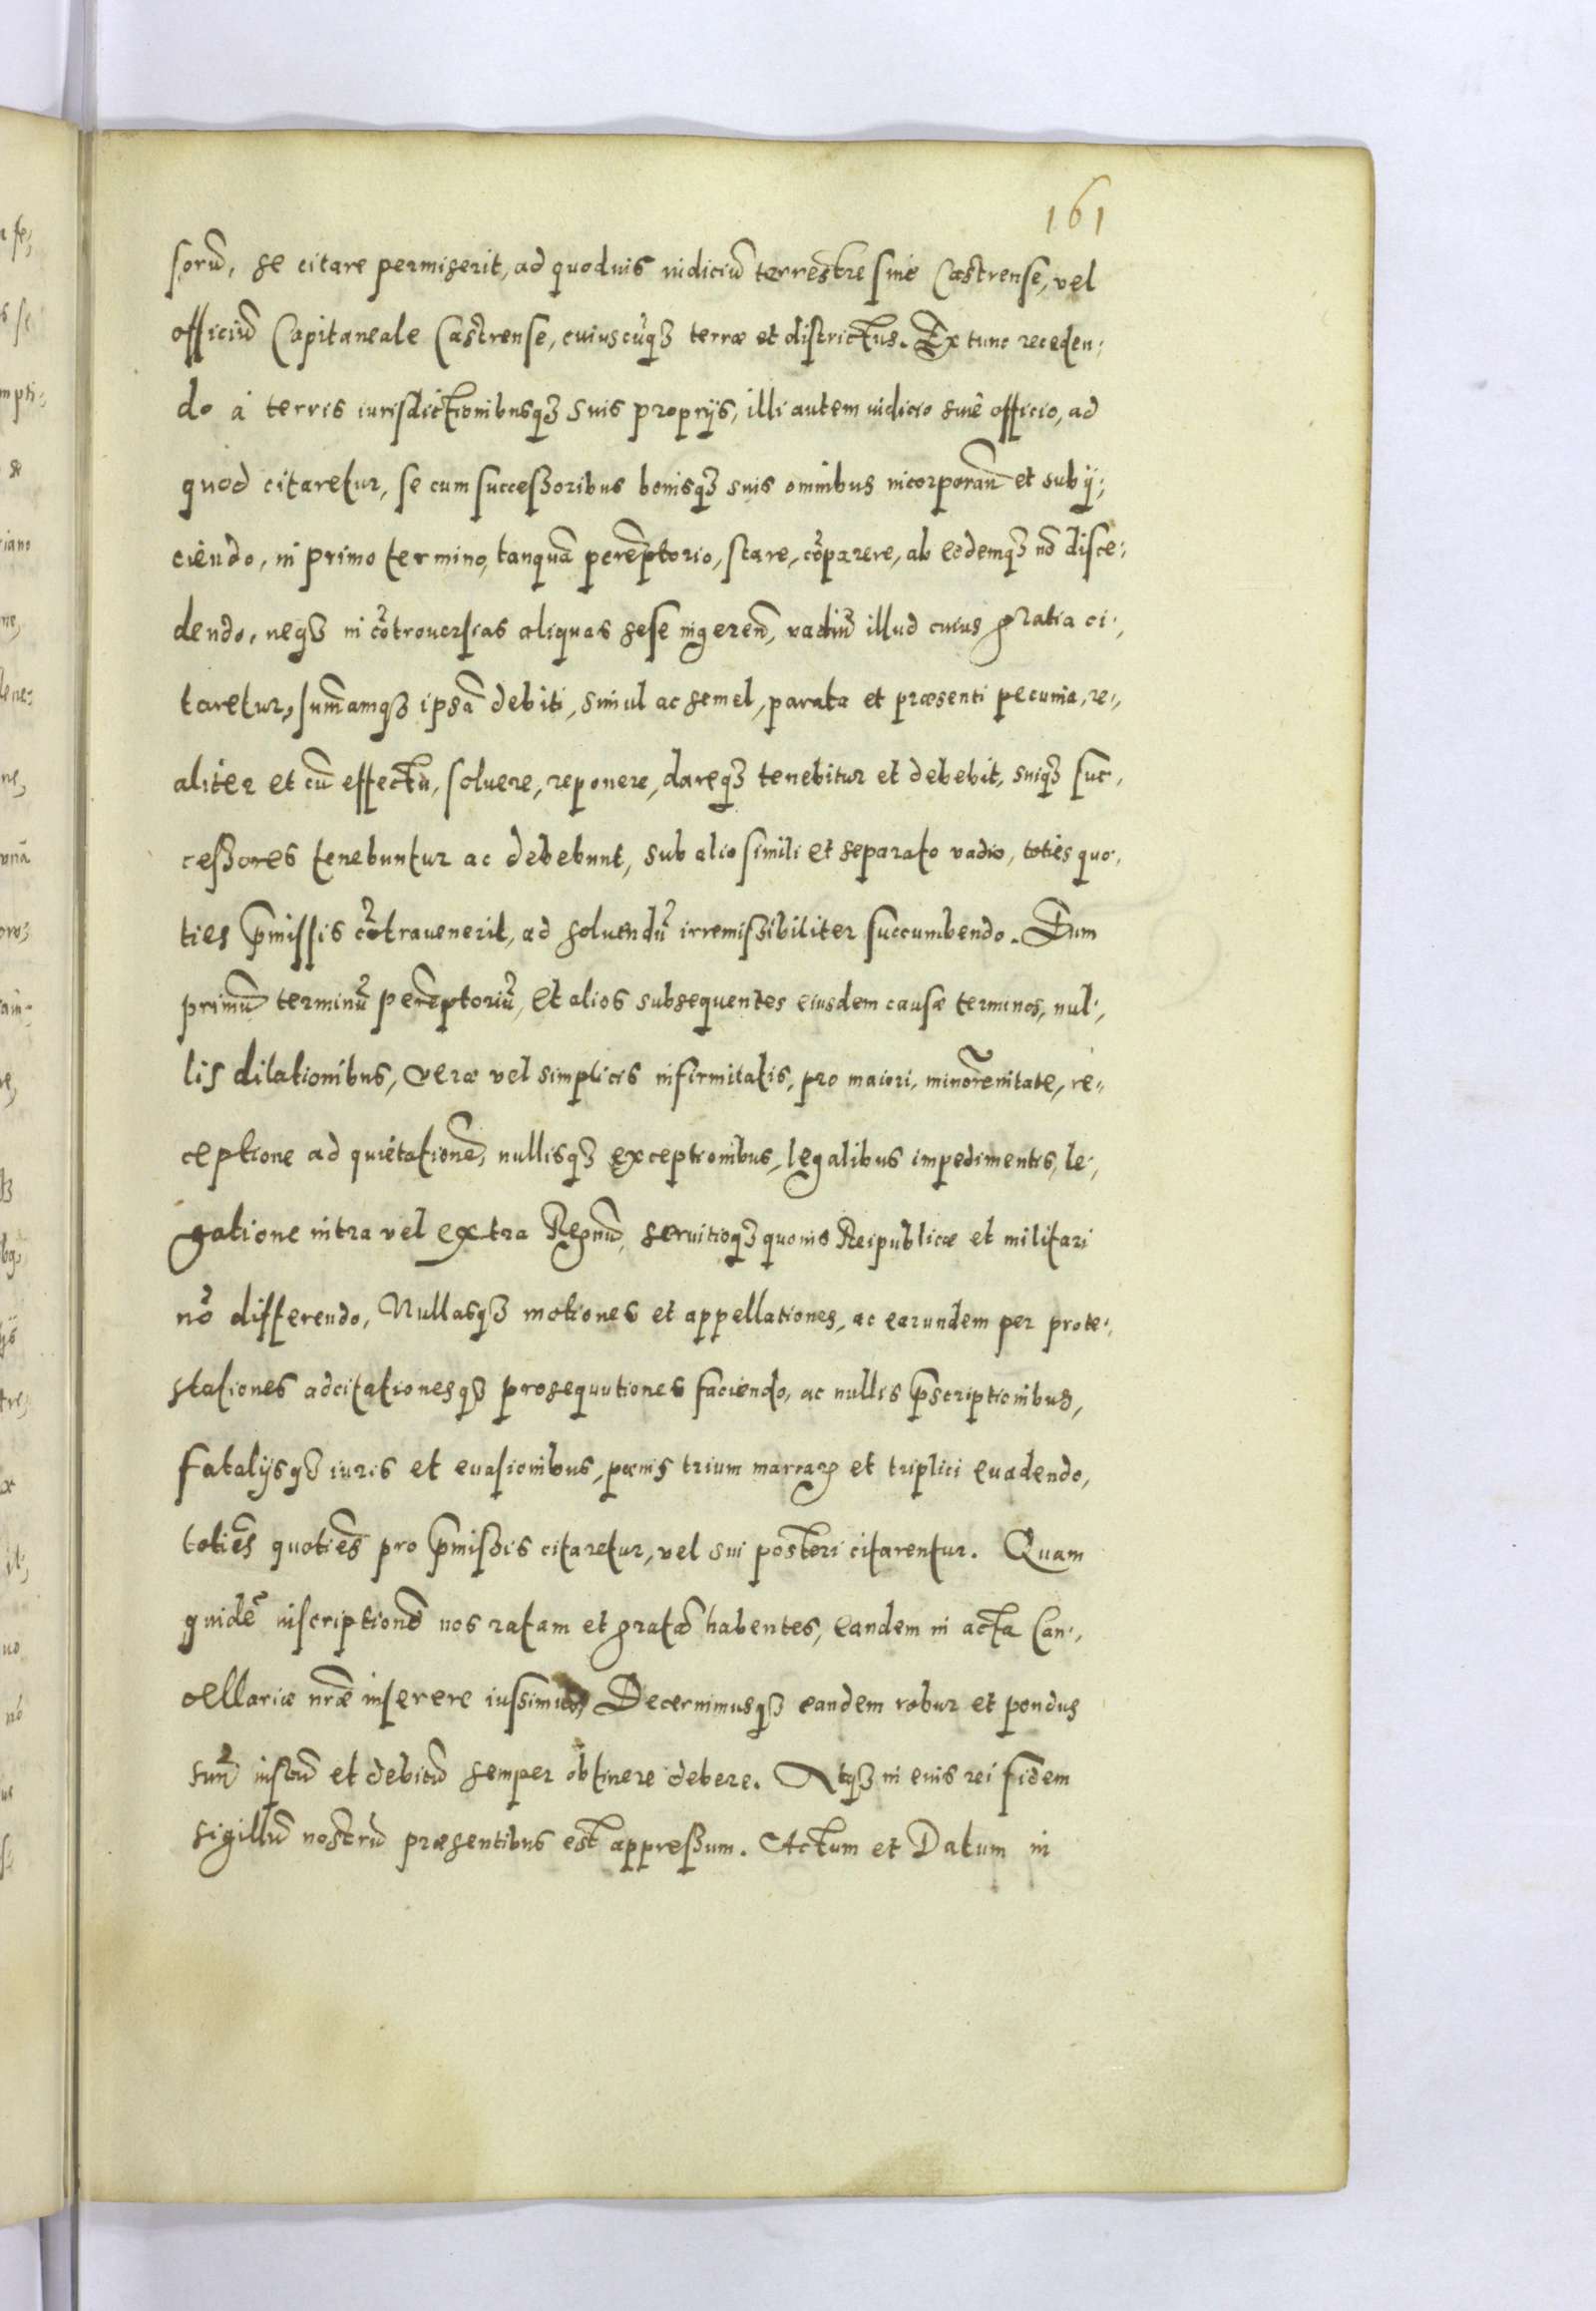 161
sorū, se citare permiserit, ad quoduis iudiciū terrestre siue Castrense, vel
officiū Capitaneale Castrense, cuiuscūqꝫ terræ et districtus. Ex tunc receden:
do à terris iurisdictionibusqꝫ suis proprijs, illi autem iudicio siue officio, ad
quod citaretur, se cum successoribus bonisqꝫ suis omnibus incorporan̄ et subij:
ciendo, in primo termino, tanquā perēptorio, stare, cōparere, ab eodemqꝫ nō disce:
dendo, neqꝫ in cōtrouersias aliquas sese ingeren̄, vadiū illud cuius gratia ci:
taretur, sum̄amqꝫ ipsā debiti, simul ac semel, parata et præsenti pecunia, re:
aliter et cū effectu, soluere, reponere, dareqꝫ tenebitur et debebit, suiqꝫ suc:
cessores tenebuntur ac debebunt, sub alio simili et separato vadio, toties quo:
ties p̄missis cōtrauenerit, ad soluendū irremissibiliter succumbendo. Eum
primū terminū perēptoriū, et alios subsequentes eiusdem causæ terminos, nul:
lis dilationibus, veræ vel simplicis infirmitatis, pro maiori, minorēnitate, re:
ceptione ad quietationē, nullisqꝫ exceptionibus, legalibus impedimentis, le:
gatione intra vel extra Regnū, seruitioqꝫ quouis Reipublicæ et militari
nō differendo, Nullasqꝫ motiones et appellationes, ac earundem per prote:
stationes adcitationesqꝫ prosequutiones faciendo, ac nullis p̄scriptionibus,
fatalijsqꝫ iuris et euasionibus, pœnis trium marcarꝝ et triplici euadendo,
totiēs quotiēs pro p̄missis citaretur, vel sui posteri citarentur. Quam
quidē inscriptionē nos ratam et gratā habentes, eandem in acta Can:
cellariæ nr̄æ inserere iussimus, Decernimusqꝫ eandem robur et pondus
suū iustū et debitū semper obtinere debere. Atqꝫ in euis rei fidem
sigillū nostrū præsentibus est appressum. Actum et Datum in